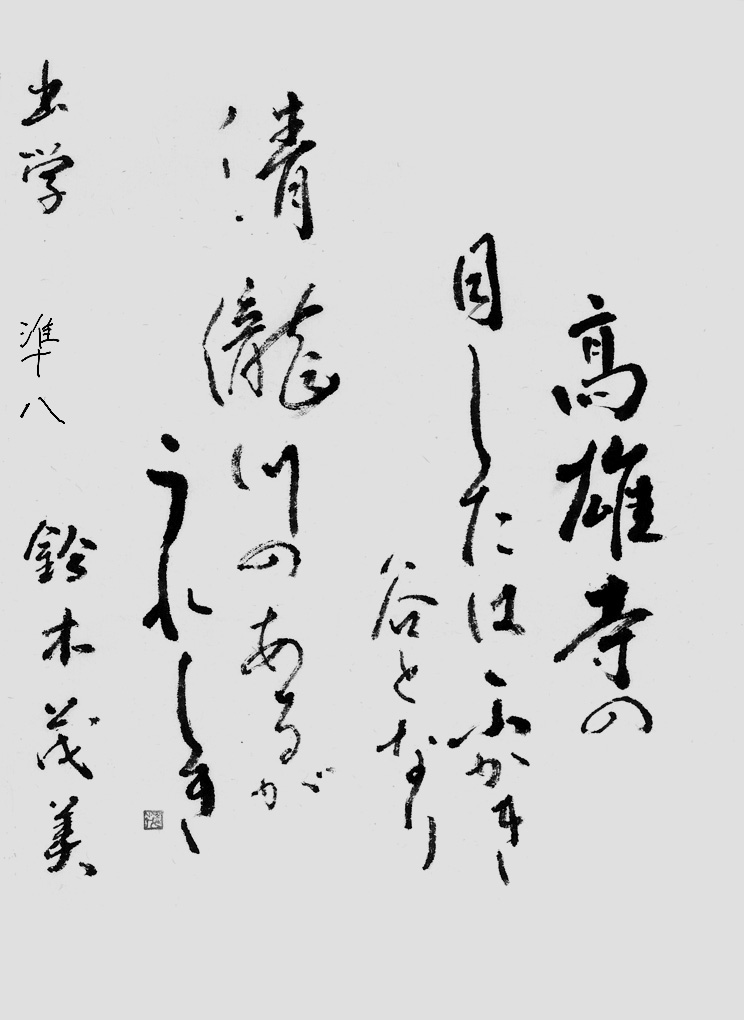 高雄寺の
目したはふかき
谷となり
清瀧川のあるが
うれしき
出学 準八 鈴木茂美